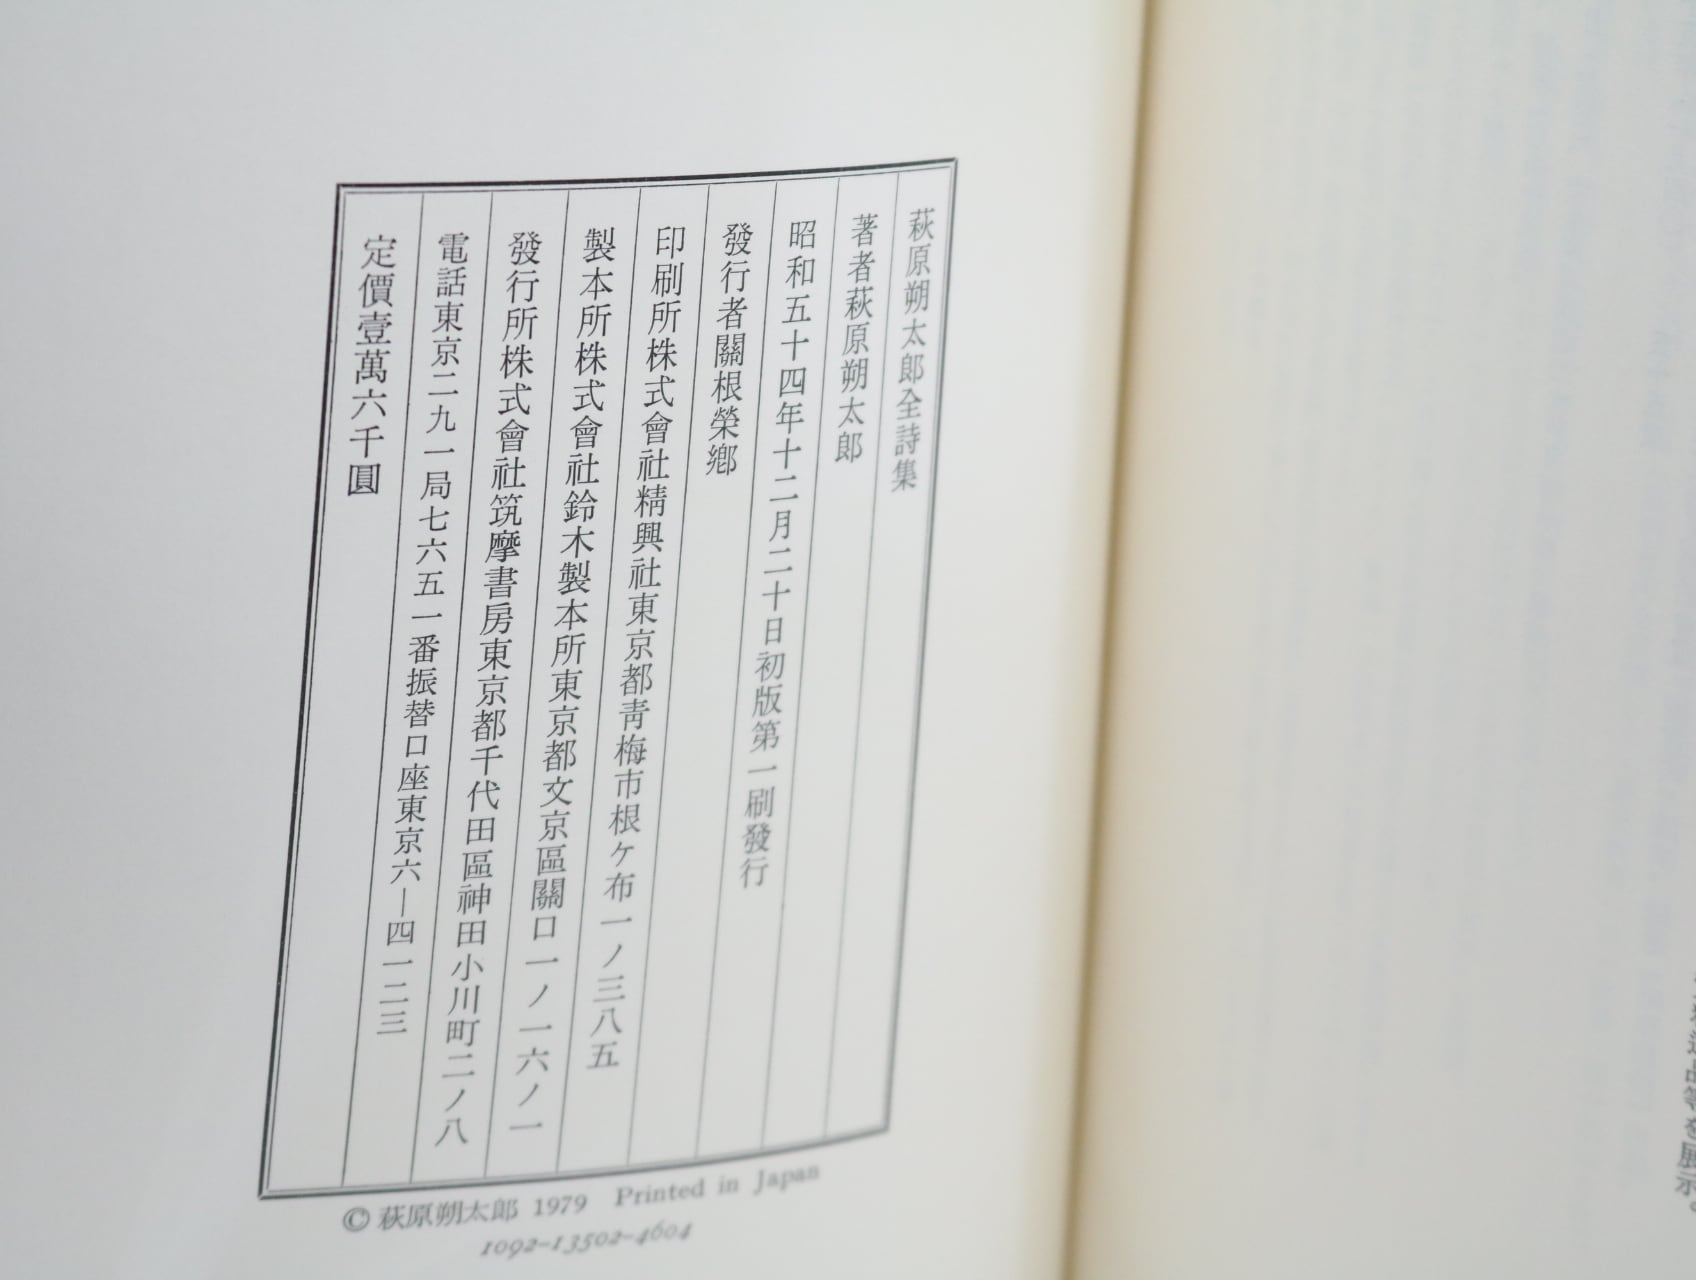 萩原朔太郎全詩集
著者萩原朔太郎
昭和五十四年十二月二十日初版第一刷發行
發行者關根榮鄕
印刷所株式會社精興社東京都靑梅市根ケ布一ノ三八五
製本所株式會社鈴木製本所東京都文京區關口一ノ一六ノ一
發行所株式會社筑摩書房東京都千代田區神田小川町二ノ八
電話東京二九一局七六五一番振替口座東京六―四一二三
定價壹萬六千圓
© 萩原朔太郎 1979 Printed in Japan
1092-13502-4604
等を展示。